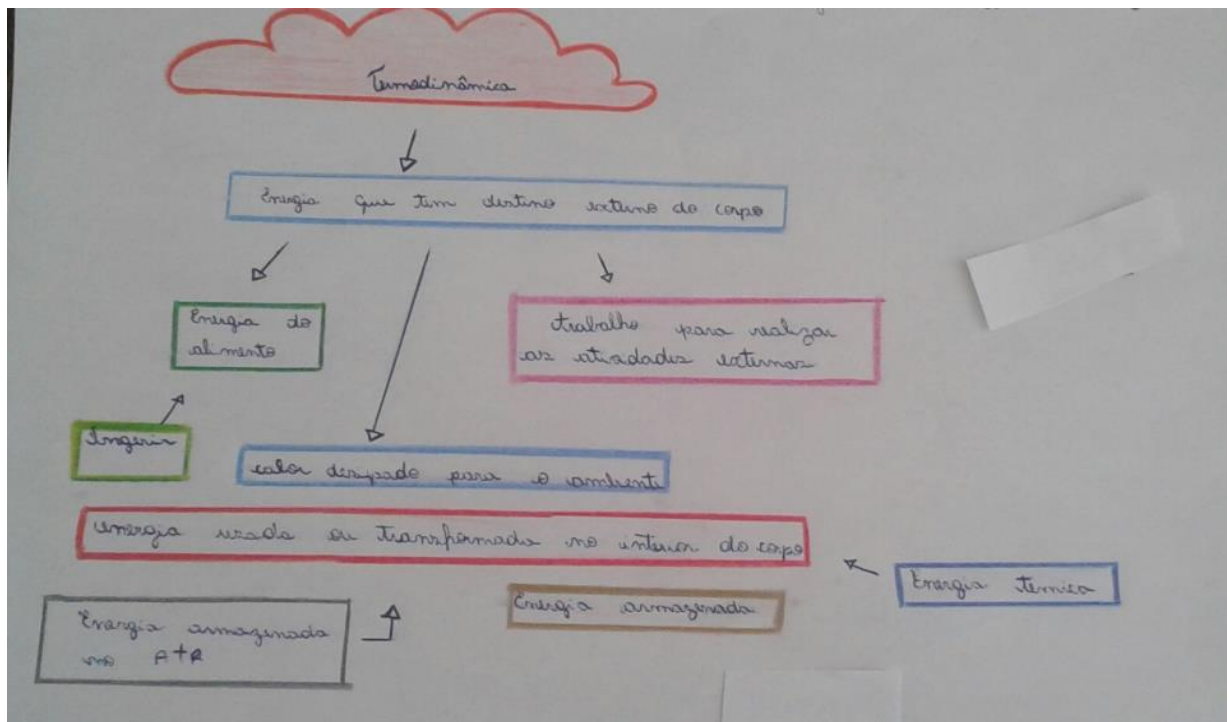 Termodinâmica
Energia que tem destino externo do corpo
Energia do
alimento
trabalho para realizar
as atividades externas
Ingerir
calor desipado para o ambiente
energia usada ou transformada no interior do corpo
Energia térmica
Energia armazenada
Energia armazenada
no A+R